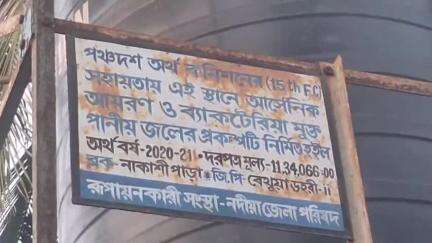 পঞ্চদশ অর্থ কমিশনের (15 th F.C)
সহায়তায় এই স্থানে আর্সেনিক
আয়রণ ও ব্যাকটেরিয়া মুক্ত
পানীয় জলের প্রকল্পটি নির্মিত হইল
অর্থ বর্ষ-2020-21 • দরপত্র মূল্য-11,34,066-00
ব্লক-নাকাশী পাড়া • জি.পি-বেথুয়াডহরী-II
রূপায়নকারী সংস্থা-নদীয়া জেলা পরিষদ